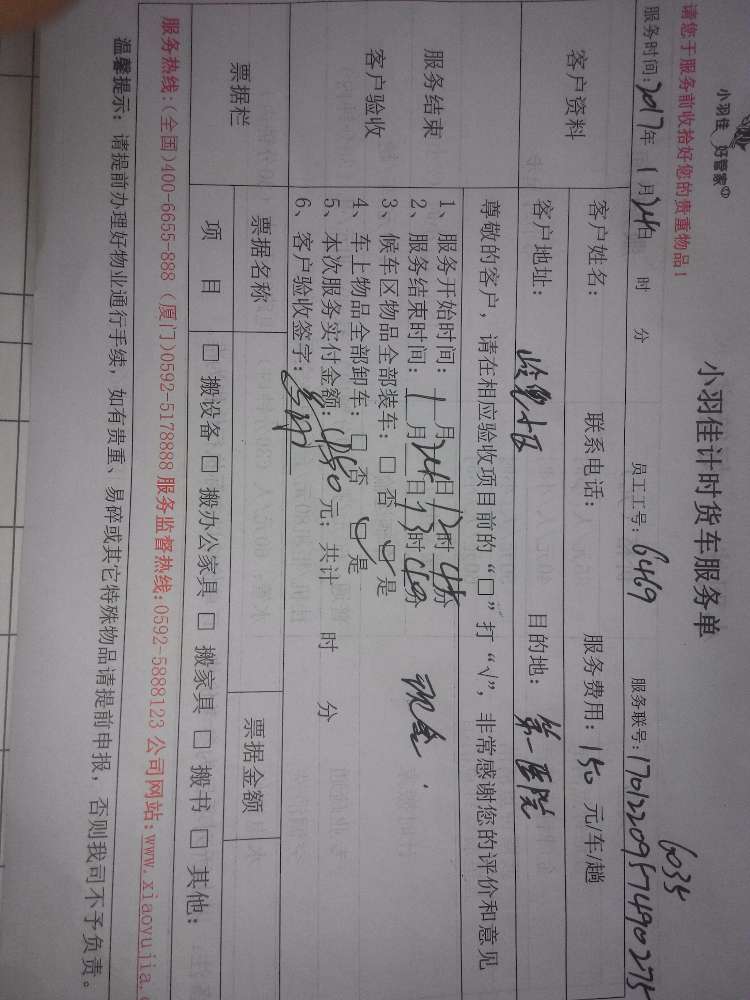 小羽佳 好管家
请您于服务前收拾好您的贵重物品！
小羽佳计时货车服务单
6035
服务时间：2017年 1月24日 时 分 员工工号：6469 服务联号：17012209574900275
客户资料
客户姓名： 联系电话： 服务费用：150 元/车/趟
客户地址： 目的地：第一医院
服务结束
客户验收
尊敬的客户，请在相应验收项目前的“□”打“√”，非常感谢您的评价和意见
1、服务开始时间：1月24日12时45分
2、服务结束时间：1月 日13时40分
现金
3、候车区物品全部装车：□ 否 □是
4、车上物品全部卸车：□ 否 □是
5、本次服务实付金额：150 元；共计 时 分
6、客户验收签字：
票据栏
票据名称 票据金额
项 目 □ 搬设备 □ 搬办公家具 □ 搬家具 □ 搬书 □ 其他：
服务热线:(全国)400-6655-888 (厦门)0592-5178888 服务监督热线:0592-5888123 公司网站:www.xiaoyujia.
温馨提示：请提前办理好物业通行手续，如有贵重、易碎或其它特殊物品请提前申报，否则我司不予负责。